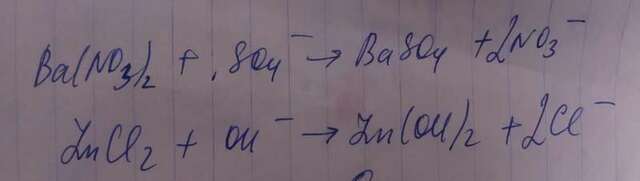 Ba(NO₃)₂ + SO₄⁻ → BaSO₄ + 2NO₃⁻
ZnCl₂ + OH⁻ → Zn(OH)₂ + 2Cl⁻